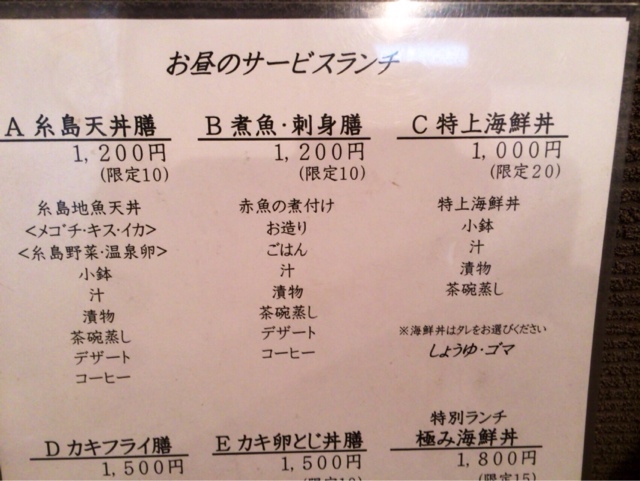 お昼のサービスランチ
A 糸島天丼膳
1,200円
(限定10)
糸島地魚天丼
<メゴチ・キス・イカ>
<糸島野菜・温泉卵>
小鉢
汁
漬物
茶碗蒸し
デザート
コーヒー
B 煮魚・刺身膳
1,200円
(限定10)
赤魚の煮付け
お造り
ごはん
汁
漬物
茶碗蒸し
デザート
コーヒー
C 特上海鮮丼
1,000円
(限定20)
特上海鮮丼
小鉢
汁
漬物
茶碗蒸し
※海鮮丼はタレをお選びください
しょうゆ・ゴマ
D カキフライ膳
1,500円
E カキ卵とじ丼膳
1,500円
(限定10)
特別ランチ
極み海鮮丼
1,800円
(限定15)